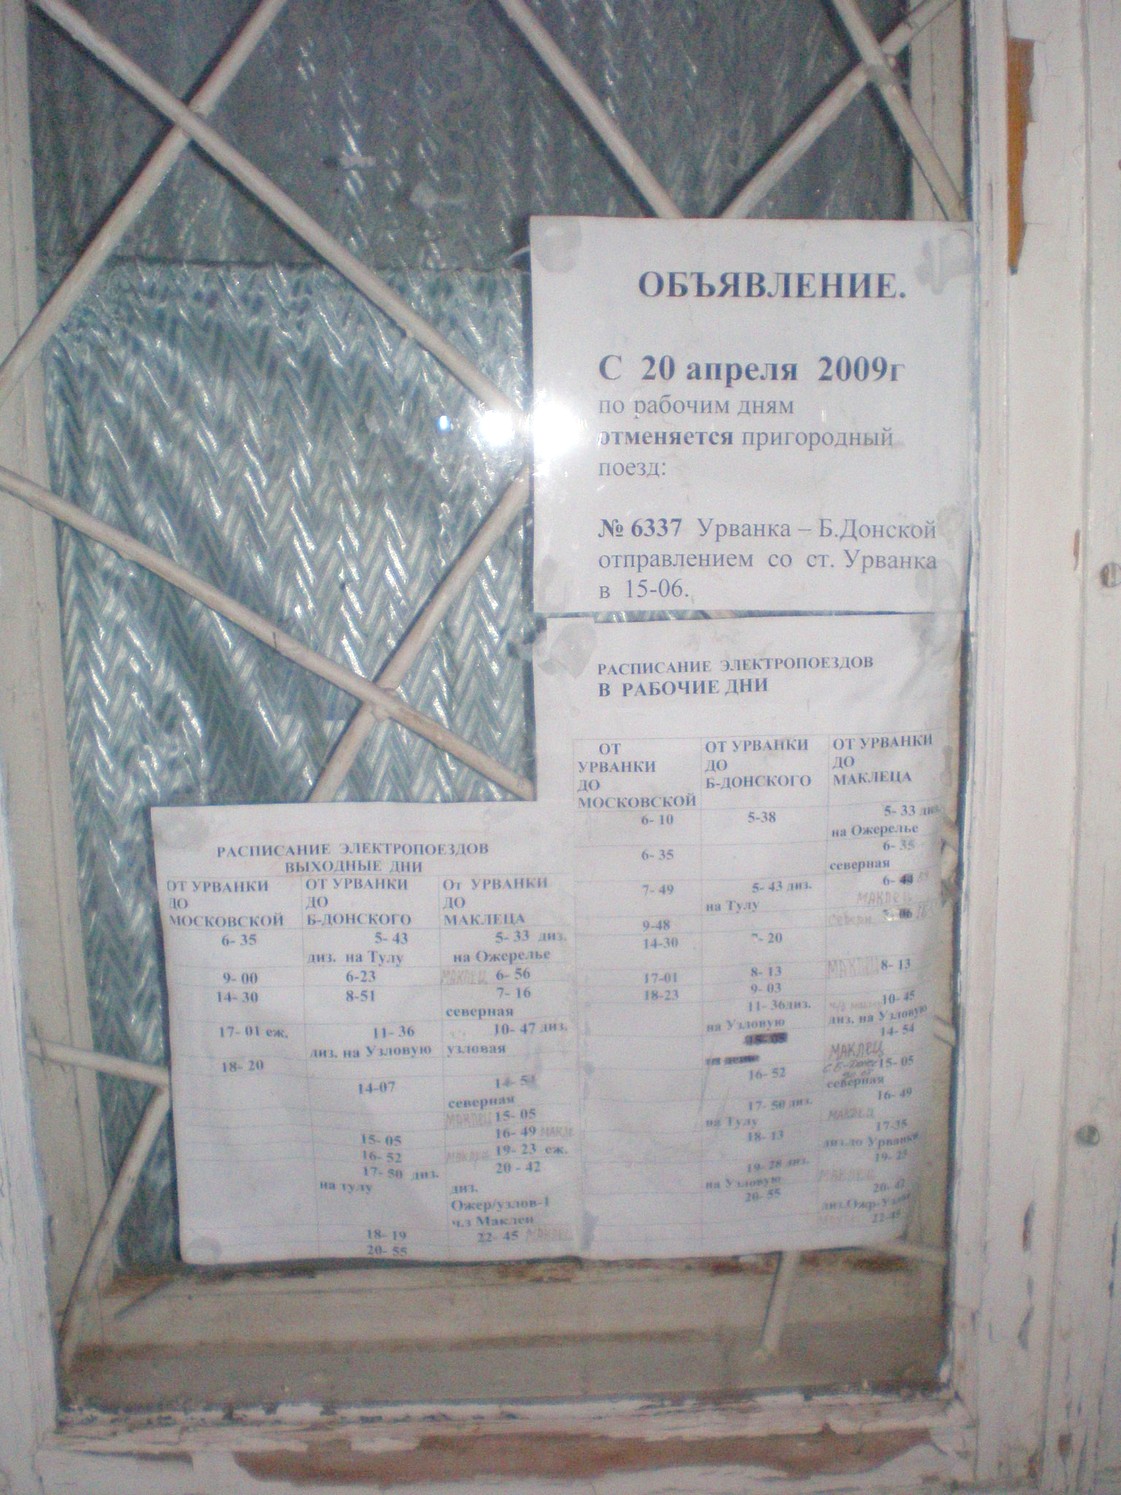 ОБЪЯВЛЕНИЕ.
С 20 апреля 2009г
по рабочим дням
отменяется пригородный
поезд:
№ 6337 Урванка – Б.Донской
отправлением со ст. Урванка
в 15-06.
РАСПИСАНИЕ ЭЛЕКТРОПОЕЗДОВ
В РАБОЧИЕ ДНИ
ОТ УРВАНКИ ДО МОСКОВСКОЙ
6- 10
6- 35
7- 49
9-48
14-30
17-01
18-23
ОТ УРВАНКИ ДО Б-ДОНСКОГО
5-38
5- 43 диз.
на Тулу
7- 20
8- 13
9- 03
11- 36диз.
на Узловую
16- 52
17- 50 диз.
на Тулу
18- 13
19- 28 диз.
на Узловую
20- 55
ОТ УРВАНКИ ДО МАКЛЕЦА
5- 33 диз.
на Ожерелье
6- 35
северная
МАКЛЕЦ
МАКЛЕЦ 8- 13
10- 45
диз. на Узловую
14- 54
МАКЛЕЦ
15- 05
северная
16- 49
МАКЛЕЦ
17-35
диз.до Урванки
19- 23
МАКЛЕЦ
20- 42
22-45
РАСПИСАНИЕ ЭЛЕКТРОПОЕЗДОВ
ВЫХОДНЫЕ ДНИ
ОТ УРВАНКИ ДО МОСКОВСКОЙ
6- 35
9- 00
14- 30
17- 01 еж.
18- 20
ОТ УРВАНКИ ДО Б-ДОНСКОГО
5- 43
диз. на Тулу
6-23
8-51
11- 36
диз. на Узловую
14-07
15- 05
16- 52
17- 50 диз.
на тулу
18- 19
20- 55
От УРВАНКИ ДО МАКЛЕЦА
5- 33 диз.
на Ожерелье
МАКЛЕЦ 6- 56
7- 16
северная
10- 47 диз.
узловая
14- 54
северная
МАКЛЕЦ 15- 05
16- 49
МАКЛЕЦ 19- 23 еж.
20 - 42
диз.
Ожер/узлов-1
ч.з Маклец
22- 45 МАКЛЕЦ